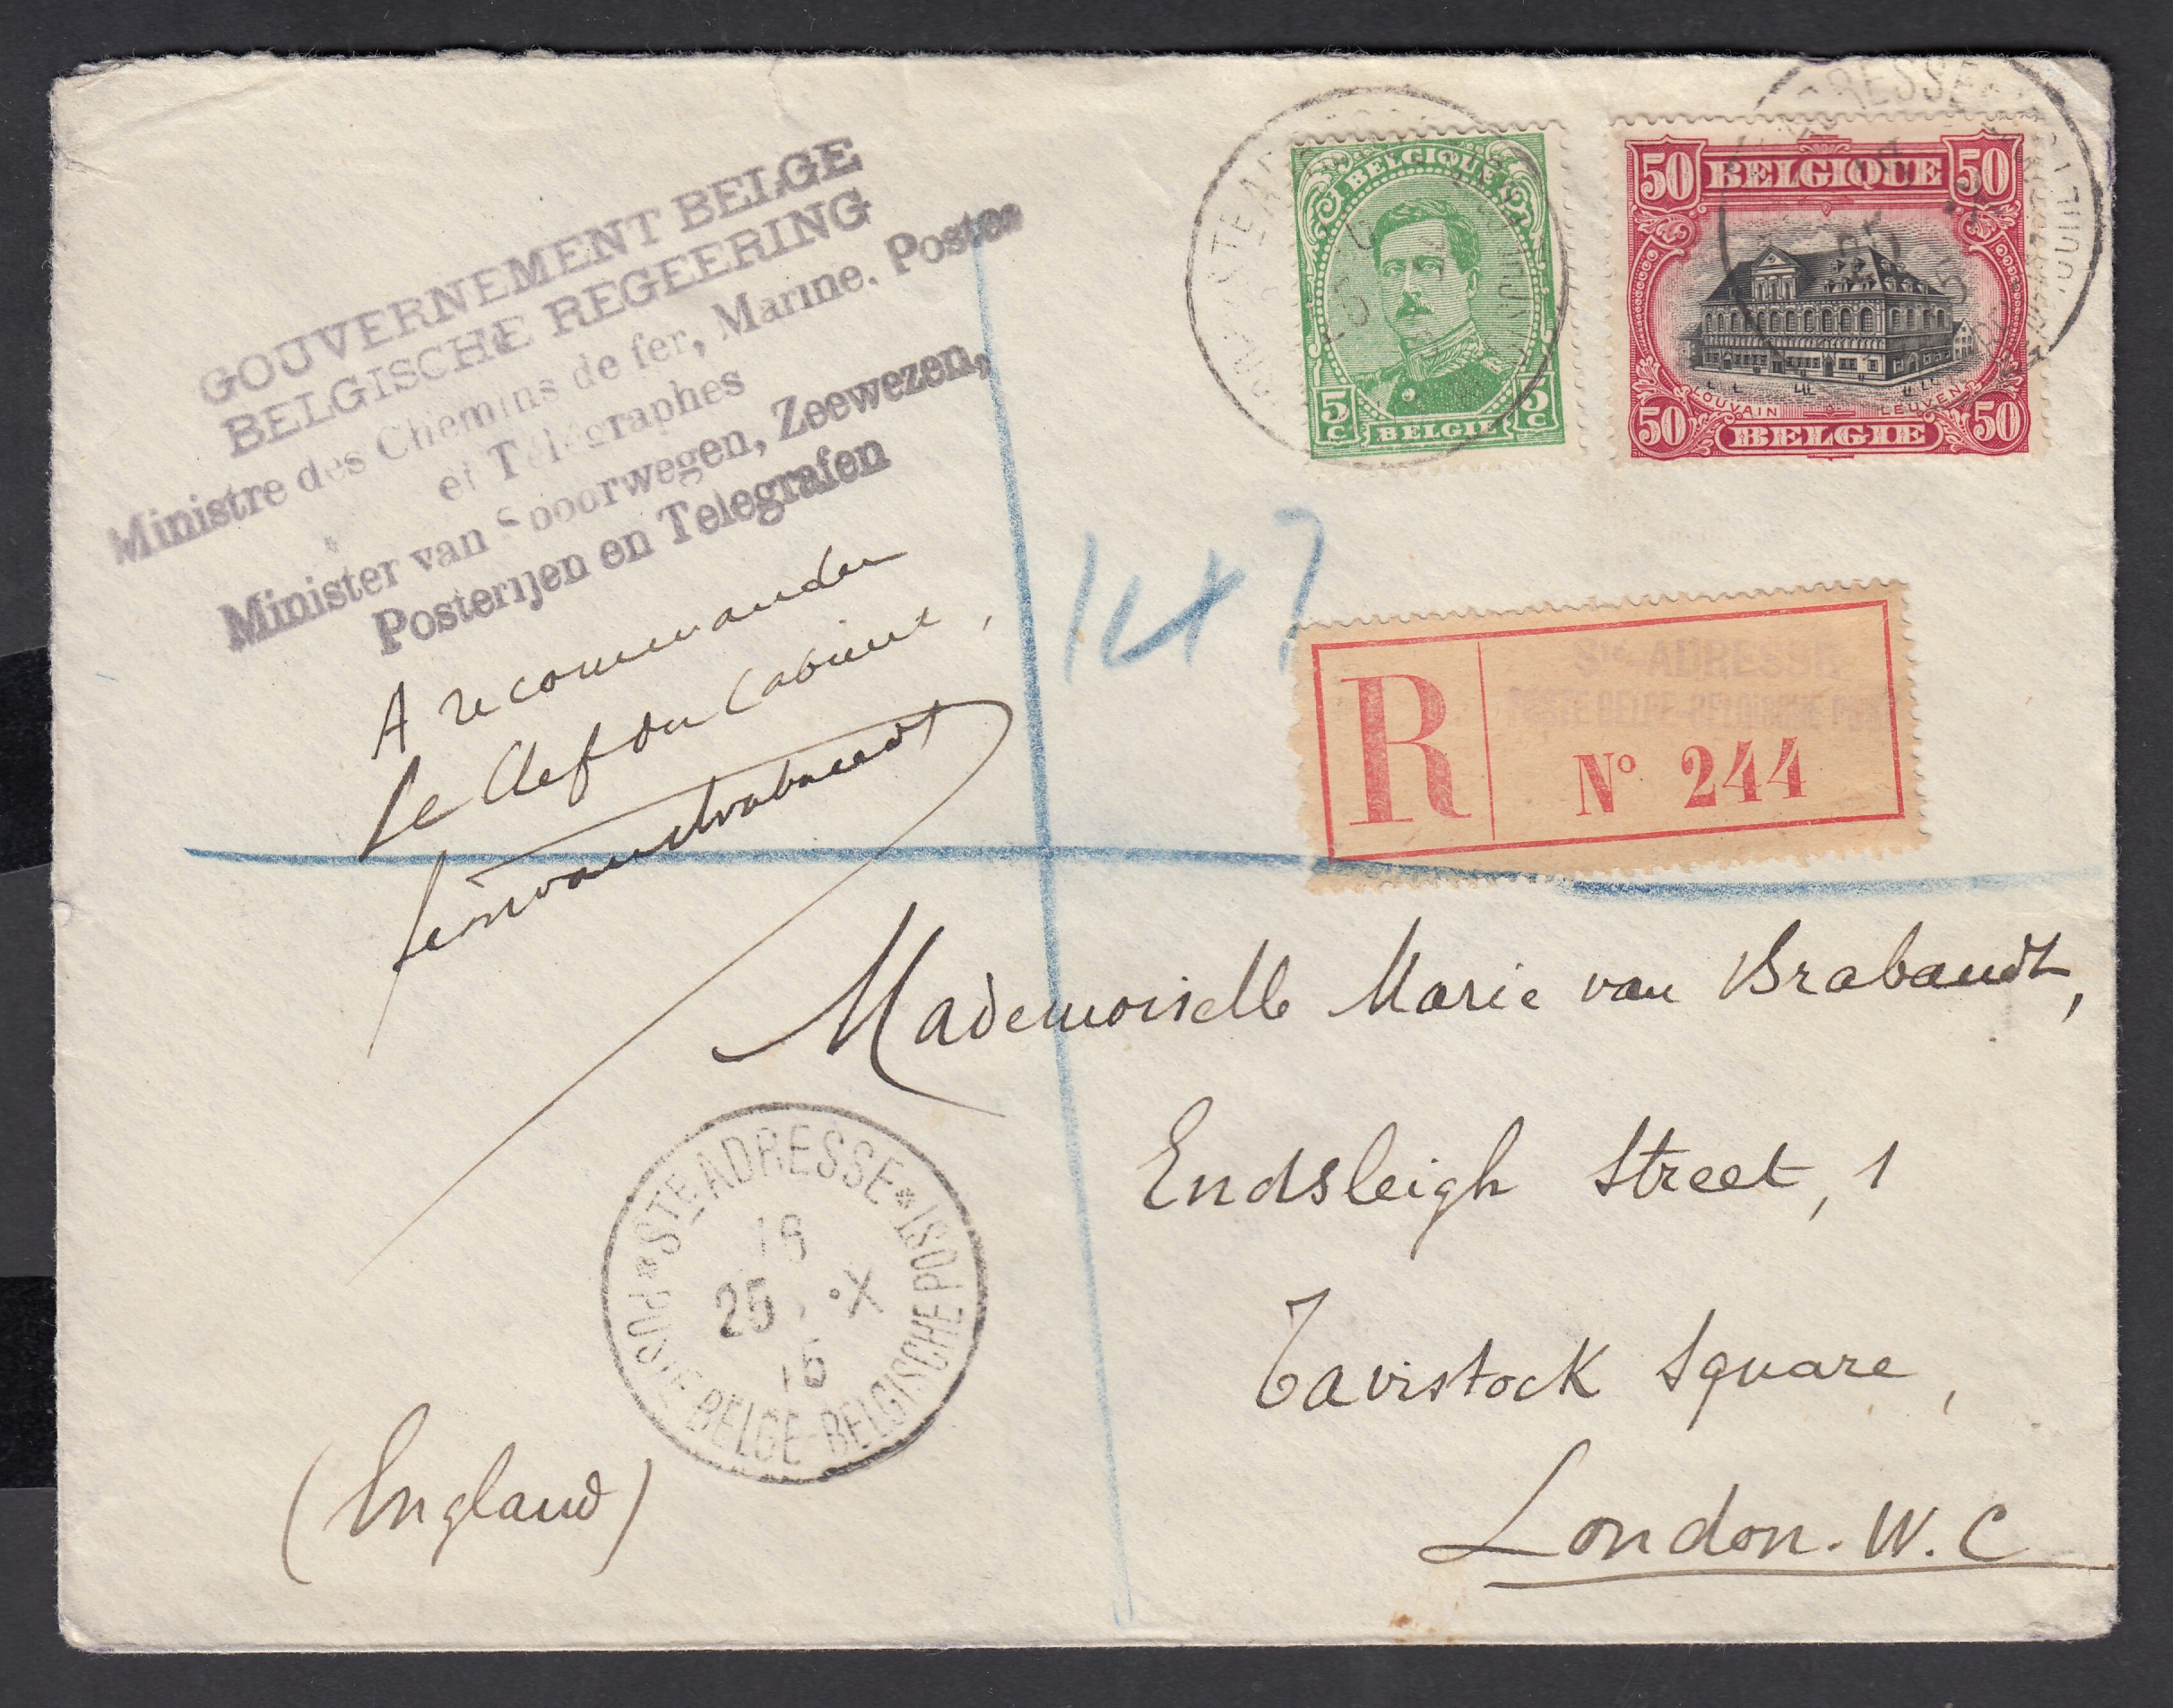 GOUVERNEMENT BELGE
BELGISCHE REGEERING
Ministre des Chemins de fer, Marine, Postes
et Télégraphes
Minister van Spoorwegen, Zeewezen,
Posterijen en Telegrafen
A recommander
Le Chef du Cabinet,
BELGIQUE
5c 5c
BELGIE
50 BELGIQUE 50
LOUVAIN LEUVEN
50 BELGIE 50
R
Ste-ADRESSE
POSTE BELGE-BELGISCHE POST
N° 244
Mademoiselle Marie van Brabandt,
Endsleigh Street, 1
Tavistock Square,
London. W. C
(England)
STE ADRESSE
25 X
15
POSTE BELGE-BELGISCHE POST